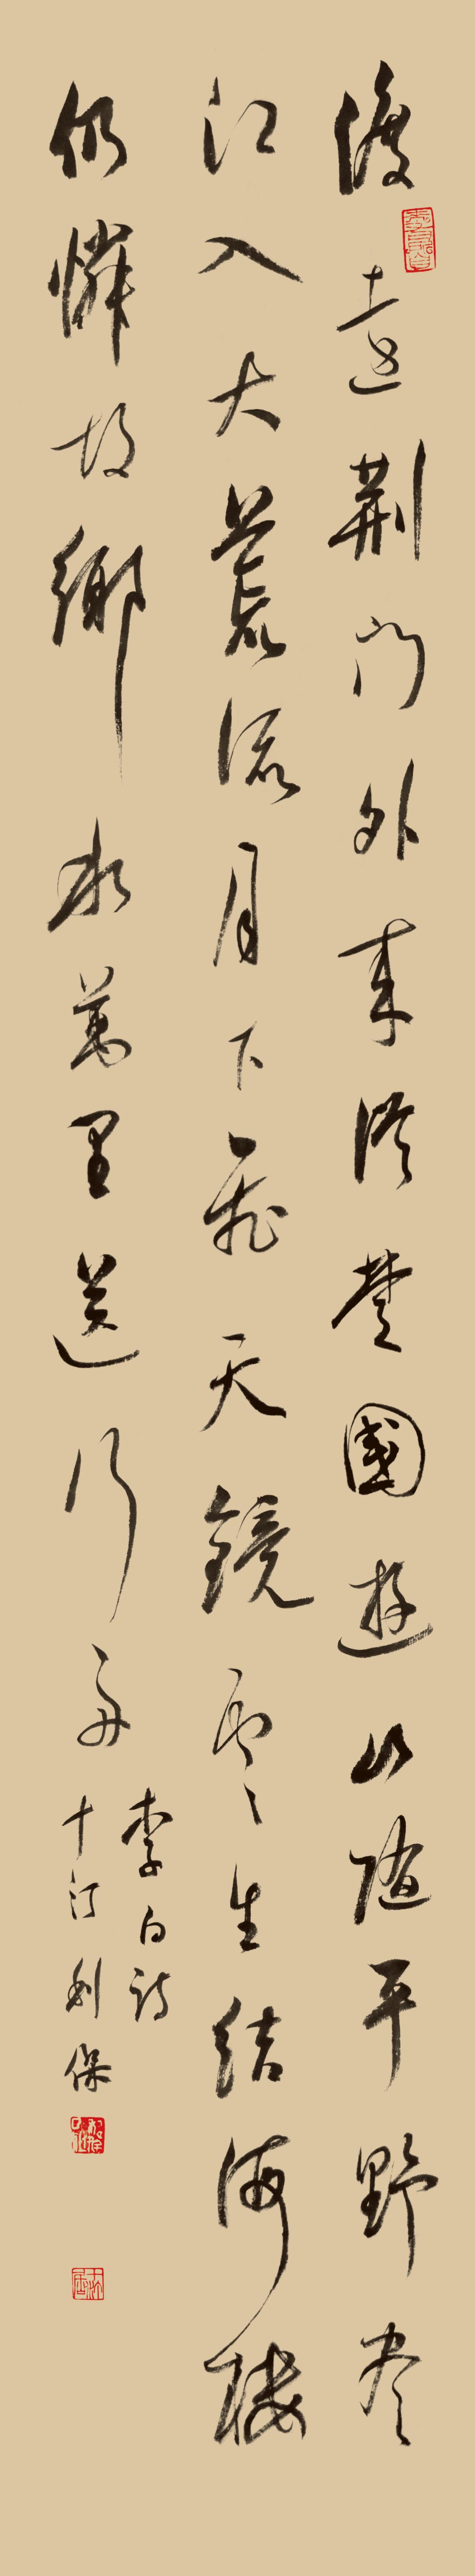 渡遠荆门外来從楚國遊山随平野尽
江入大荒流月下飛天鏡雲生結海楼
仍憐故鄉水萬里送行舟
李白詩
十汀刘保